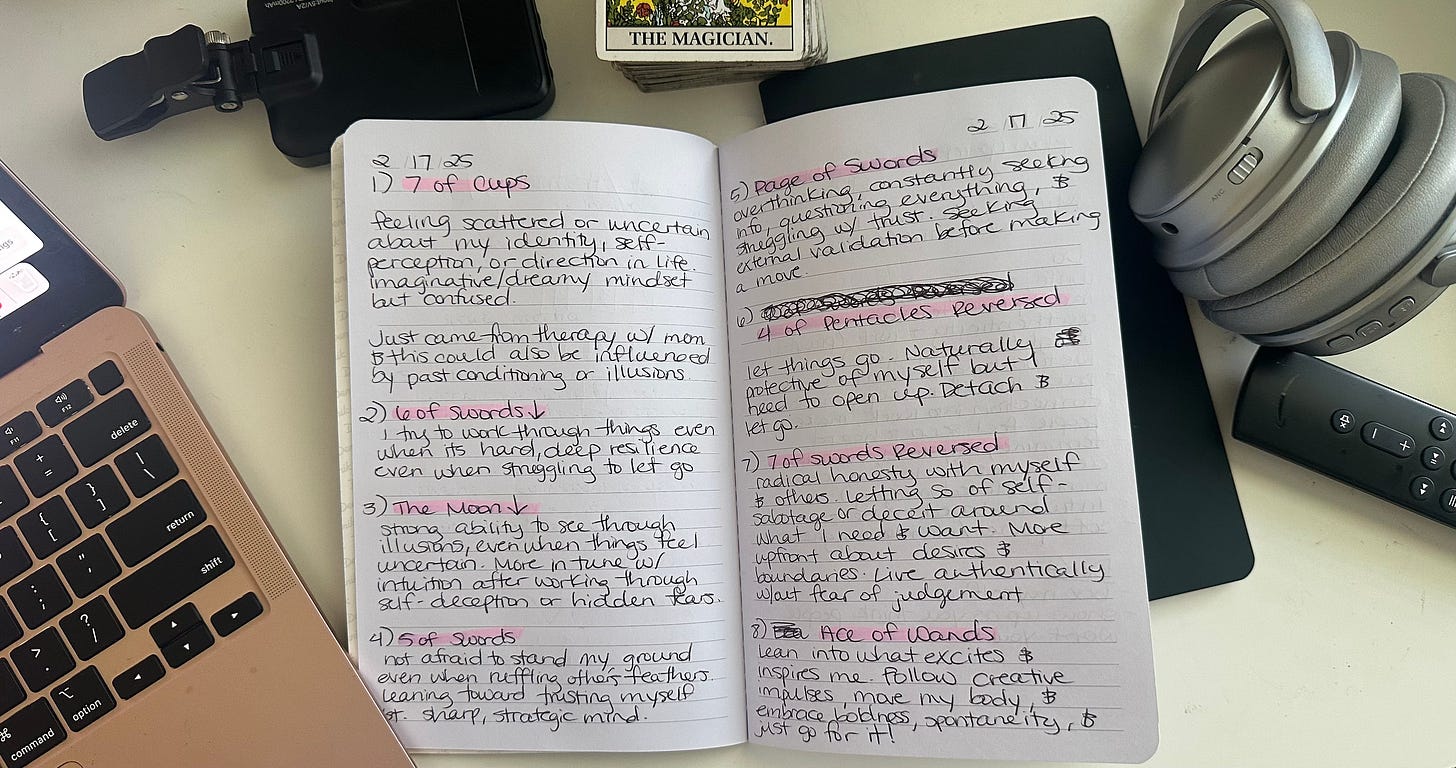 THE MAGICIAN.
2/17/25
1) 7 of Cups
feeling scattered or uncertain
about my identity, self-
perception, or direction in life.
imaginative/dreamy mindset
but confused.
Just came from therapy w/ mom
& this could also be influenced
by past conditioning or illusions.
2) 6 of Swords ↓
i try to work through things even
when its hard, deep resilience
even when struggling to let go
3) The Moon ↓
strong ability to see through
illusions, even when things feel
uncertain. More in tune w/
intuition after working through
self-deception or hidden fears.
4) 5 of Swords
not afraid to stand my ground
even when ruffling others feathers.
leaning toward trusting myself
1st. sharp, strategic mind.
2/17/25
5) Page of Swords
overthinking, constantly seeking
info, questioning everything, &
struggling w/ trust. Seeking
external validation before making
a move.
6)
4 of Pentacles Reversed
let things go. Naturally
protective of myself but I
need to open up. Detach &
let go.
7) 7 of swords Reversed
radical honesty with myself
& others. Letting so of self-
sabotage or deceit around
what I need & want. More
upfront about desires &
boundaries. Live authentically
w/out fear of judgement
8) Ace of Wands
Lean into what excites &
inspires me. Follow creative
impulses, move my body, &
embrace boldness, spontaneity, &
just go for it!
F11
F12
delete
+
=
|
\
}
]
{
[
return
:
;
"
'
shift
?
/
>
.
⌘
command
⌥
option
ANC